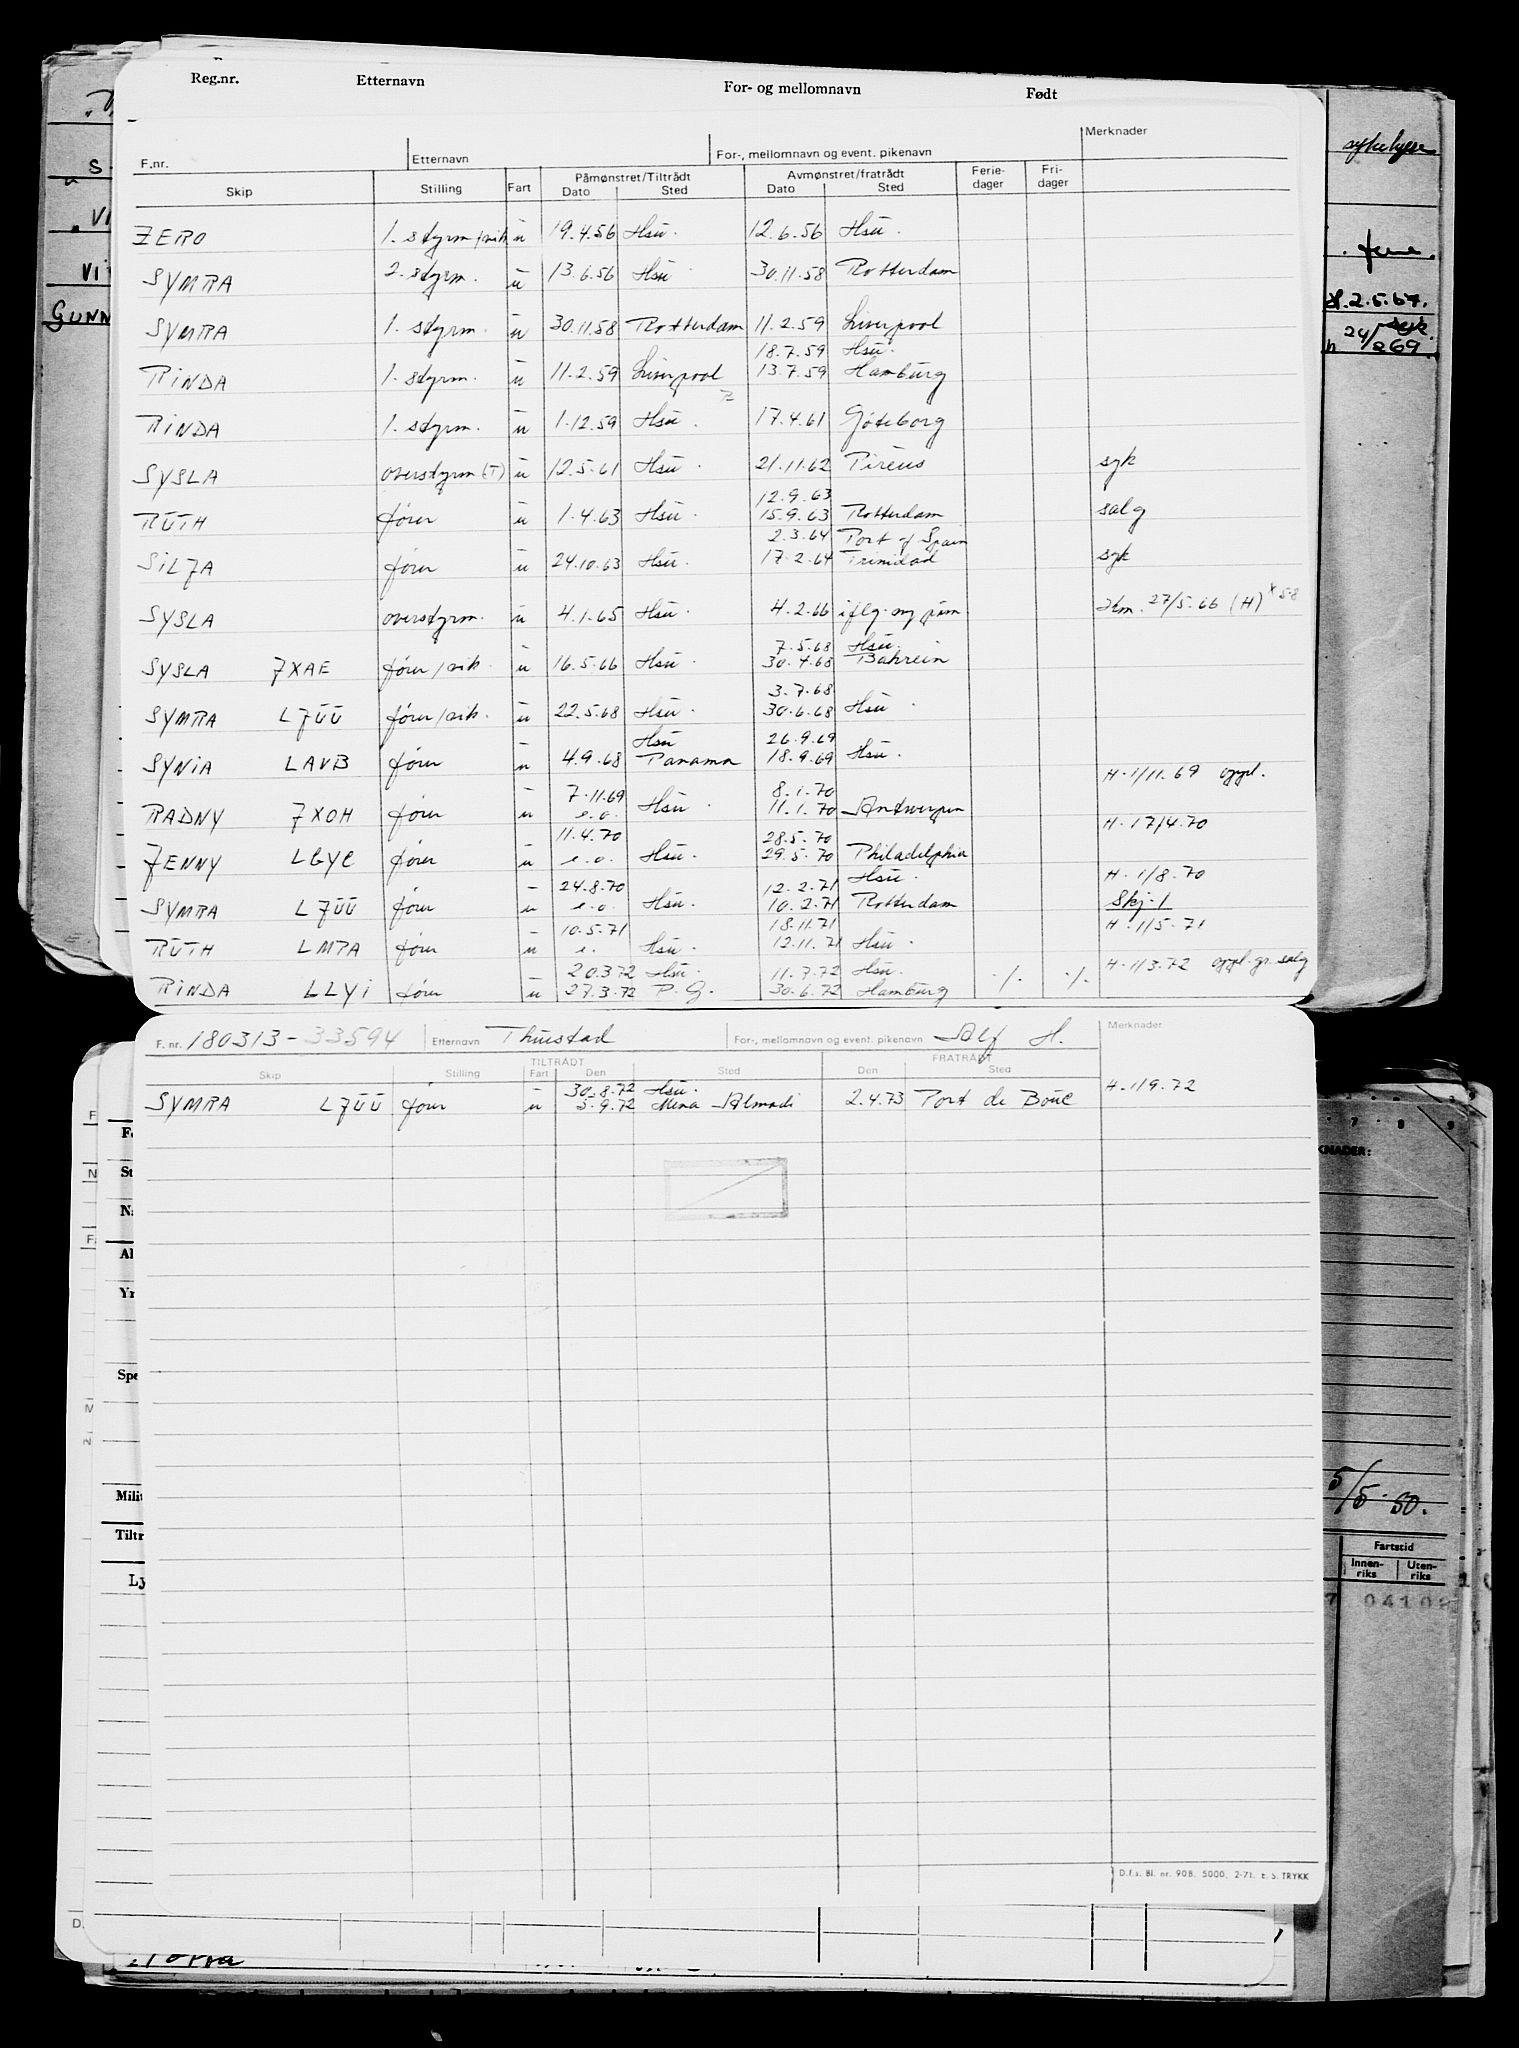 Reg.nr. Etternavn For- og mellomnavn Født
F.nr. Etternavn For-, mellomnavn og event. pikenavn Merknader
Skip Stilling Fart Påmønstret/Tiltrådt Dato Sted Avmønstret/fratrådt Dato Sted Ferie-dager Fri-dager
ZERO 1. styrm/vik u 19.4.56 Hsu. 12.6.56 Hsu.
SYMRA 2. styrm. u 13.6.56 Hsu 30.11.58 Rotterdam
SYMRA 1. styrm. u 30.11.58 Rotterdam 11.2.59 Liverpool
18.7.59 Hsu.
RINDA 1. styrm. u 11.2.59 Liverpool 13.7.59 Hamburg
RINDA 1. styrm. u 1.12.59 Hsu. 17.4.61 Göteborg
SYSLA overstyrm (T) u 12.5.61 Hsu. 21.11.62 Pireus syk
12.9.63
RUTH fører u 1.4.63 Hsu. 15.9.63 Rotterdam salg
2.3.64 Port of Spain
SILJA fører u 24.10.63 Hsu. 17.2.64 Trinidad syk
SYSLA overstyrm. u 4.1.65 Hsu. 4.2.66 iflg. ny påm Hm. 27/5.66 (H) x 58
7.5.68 Hsu.
SYSLA JXAE fører/vik. u 16.5.66 Hsu. 30.4.68 Bahrein
3.7.68
SYMRA LJUU fører/vik. u 22.5.68 Hsu. 30.6.68 Hsu.
Hsu 26.9.69
SYNIA LAVB fører u 4.9.68 Panama 18.9.69 Hsu.
7.11.69 8.1.70 H.1/11.69 oppl.
RADNY JXOH fører u e.o. Hsu. 11.1.70 Antwerpen
11.4.70 28.5.70 H.17/4.70
JENNY LGYC fører u e.o. Hsu. 29.5.70 Philadelphia
24.8.70 12.2.71 Hsu. H.1/8.70
SYMRA LJUU fører u e.o. Hsu. 10.2.71 Rotterdam Skj.1
10.5.71 18.11.71 H.1/5.71
RUTH LMRA fører u e. Hsu. 12.11.71 Hsu.
20.3.72 Hsu. 11.7.72 Hsu. H.1/3.72 oppl. gr. salg
RINDA LLYI fører u 27.3.72 P.G. 30.6.72 Hamburg ./. ./.
F. nr. 180313-33594 Etternavn Thuestad For-, mellomnavn og event. pikenavn Alf H. Merknader
TILTRÅDT FRATRÅDT
Skip Stilling Fart Den Sted Den Sted
30.8.72 Hsu. H.1/9.72
SYMRA LJUU fører u 5.9.72 Mena Almadi 2.4.73 Port de Bouc
D.f.s. Bl. nr. 90B. 5000. 2-71. E.S. TRYKK
sykehjem
GUNN
2.5.67.
KNADER:
5/5-50.
Fartstid
Innen-riks Uten-riks
Milit
Tiltr